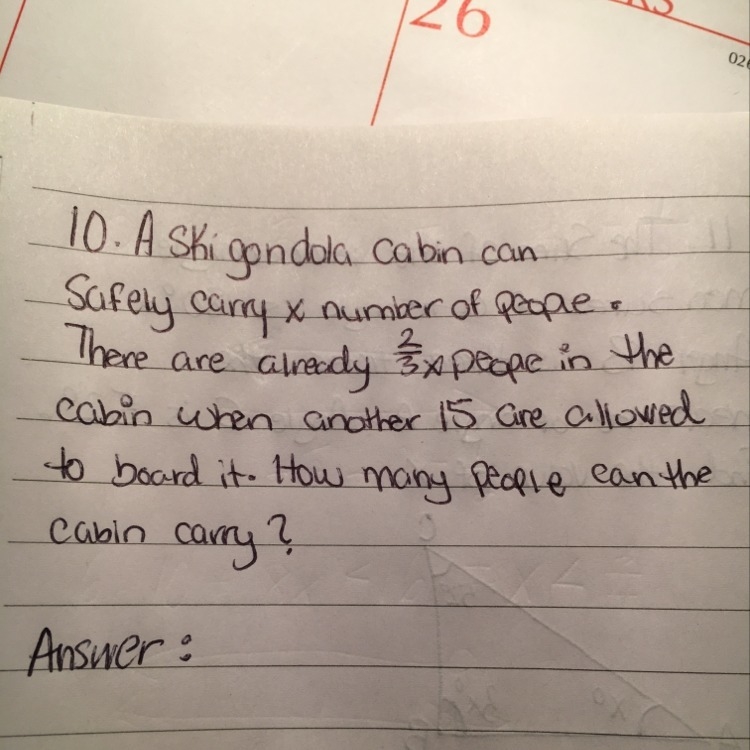 26
026
10. A Ski gondola cabin can
Safely carry x number of people.
There are already 2/3x peope in the
cabin when another 15 are allowed
to board it. How many people can the
cabin carry?
Answer: